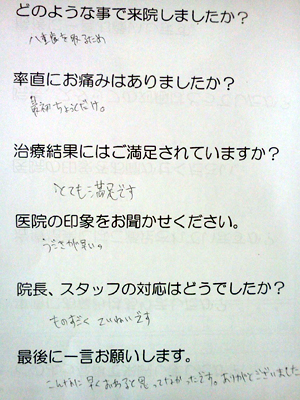 どのような事で来院しましたか?
八重歯を取るため
率直にお痛みはありましたか?
最初ちょっとだけ。
治療結果にはご満足されていますか?
とても満足です
医院の印象をお聞かせください。
うごきが早い。
院長、スタッフの対応はどうでしたか?
ものすごく ていねいです
最後に一言お願いします。
こんなに早くおわると思ってなかったです。ありがとうございました